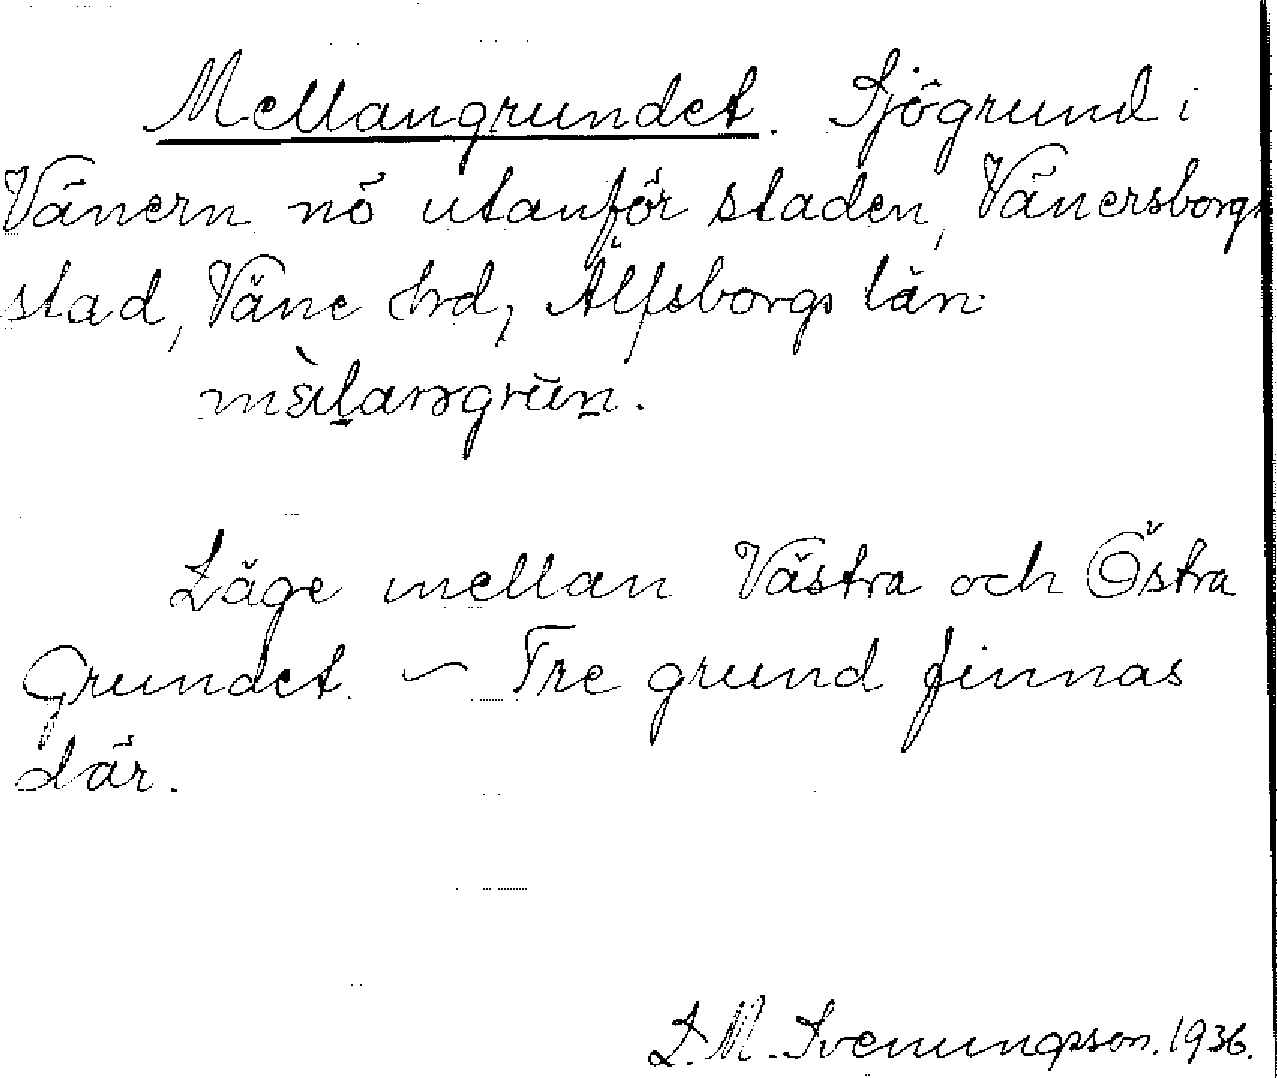 Mellangrundet. Sjögrund i
Vänern nö utanför staden, Vänersborgs
stad, Väne hrd, Älfsborgs län.
Läge mellan Västra och Östra
Grundet. – Tre grund finnas
där.
L. M. Svenungsson. 1936.